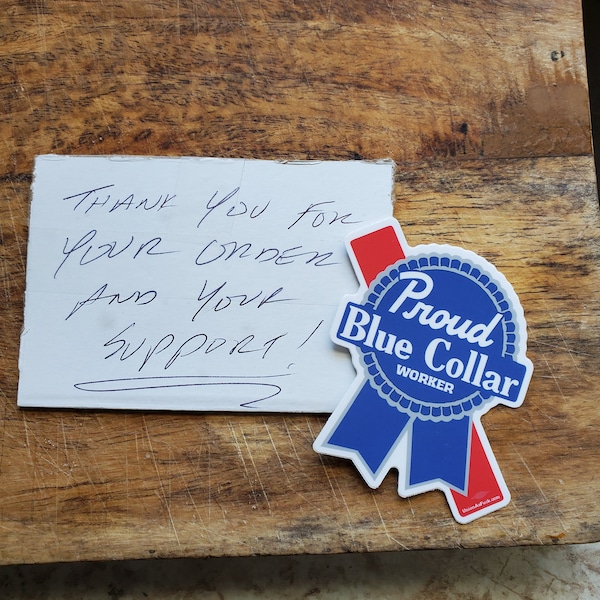 THANK YOU FOR
YOUR ORDER
AND YOUR
SUPPORT!
Proud
Blue Collar
WORKER
UnionAsFuck.com